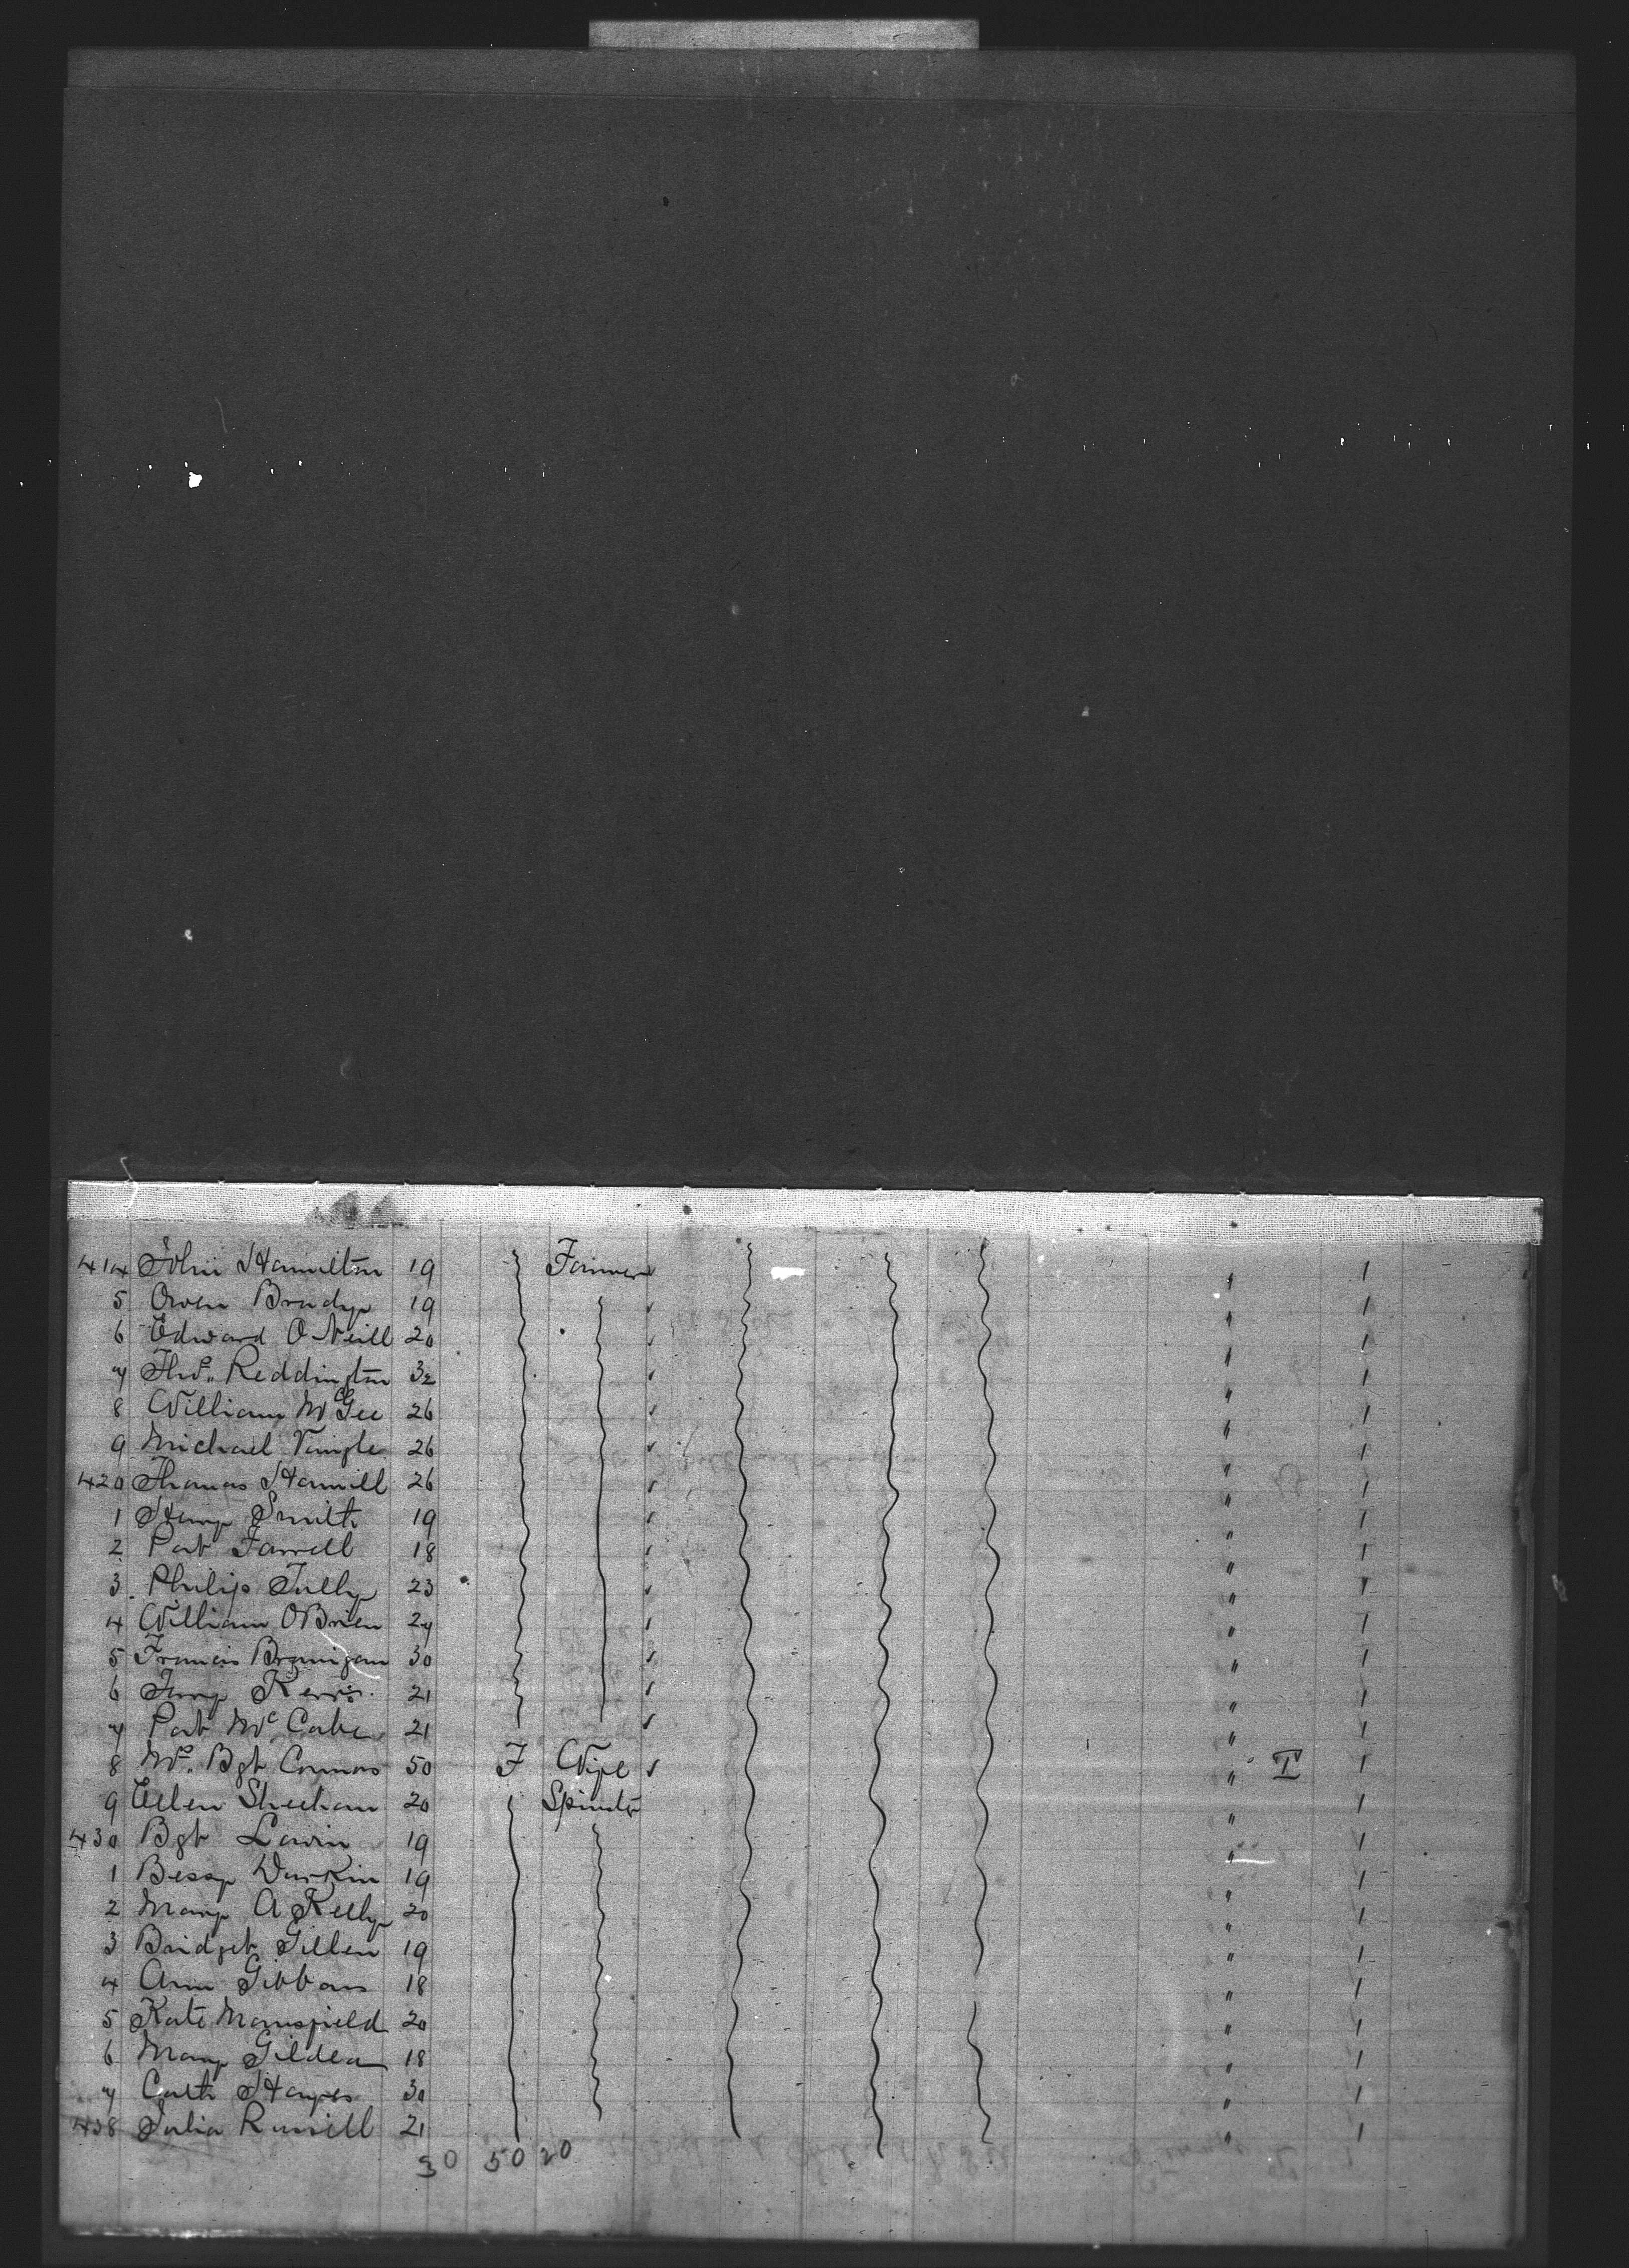 414 John Hamilton 19 Farmer 1
5 Owen Brady 19 " 1
6 Edward O'Neill 20 " 1
7 Thos. Reddington 32 " 1
8 William McGee 26 " 1
9 Michael 26 " 1
420 Thomas Hamill 26 " 1
1 Henry Smith 19 " 1
2 Pat Farrell 18 " 1
3 Philip Tully 23 " 1
4 William OBrien 24 " 1
5 Francis Branigan 30 " 1
6 21 " 1
7 Pat McCabe 21 " 1
8 Mrs. Bgt Connors 50 F Wife " I 1
9 Ellen Sheehan 20 Spinstr " 1
430 Bgt Lavin 19 " 1
1 Bessy Durkin 19 " 1
2 Mary A Kelly 20 " 1
3 Bridget Gillen 19 " 1
4 Ann Gibbons 18 " 1
5 Kate Mansfield 20 " 1
6 Mary Gildea 18 " 1
7 Cath Hayes 30 " 1
438 Julia Russell 21 " 1
30 50 20